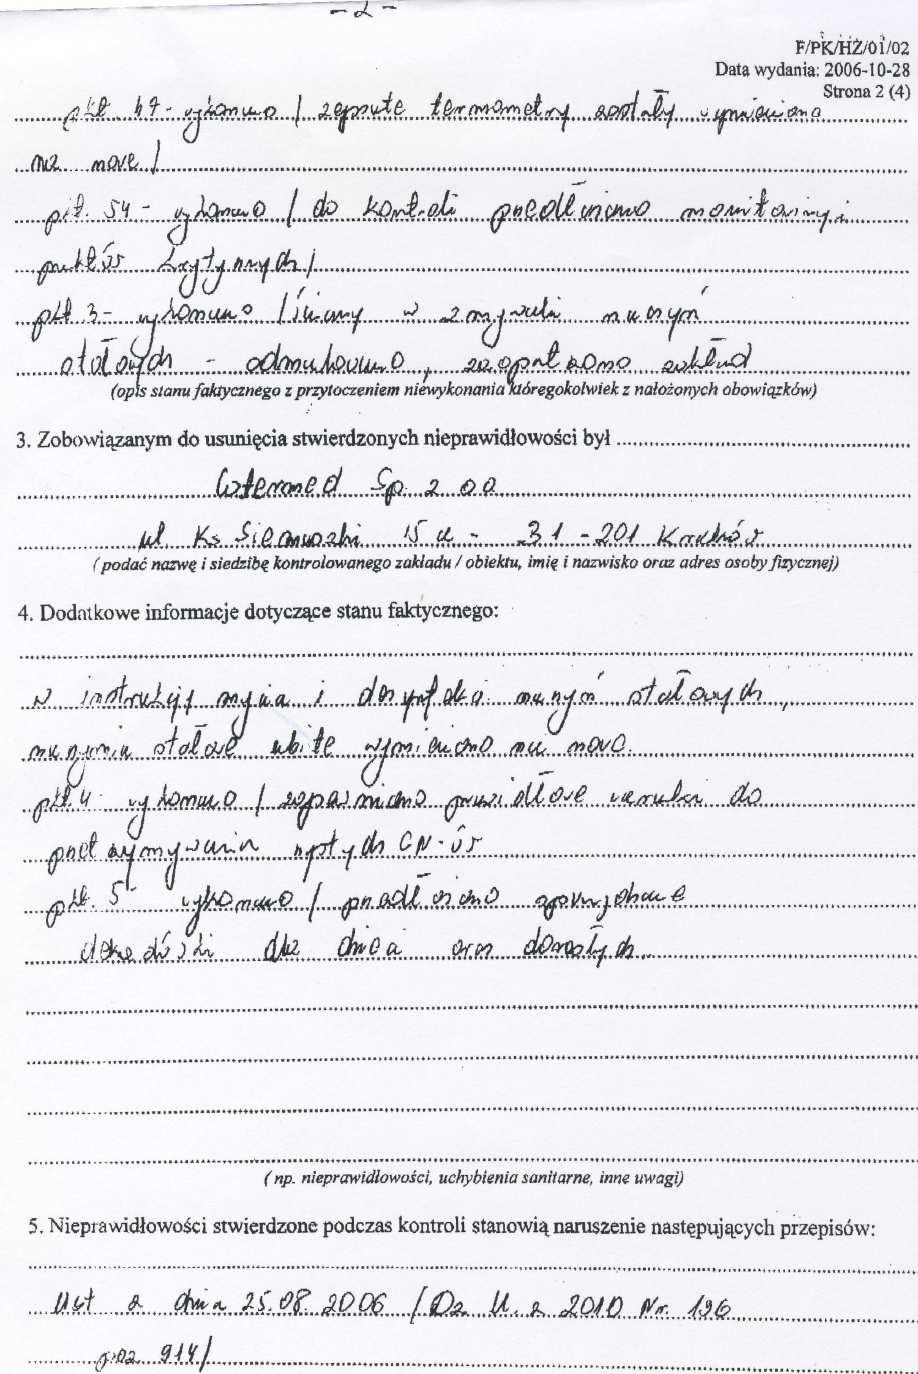 - 2 -
F/PK/HŻ/01/02
Data wydania: 2006-10-28
Strona 2 (4)
pkt. 47 - wykonano / zepsute termometry zostały wymienione
na nowe /
pkt. 54 - wykonano / do kontroli przedłożono monitoring
punktów krytycznych /
pkt 3 - wykonano / ściany w zmywalni naczyń
stołowych - odmalowano, zaopatrzono zakład
(opis stanu faktycznego z przytoczeniem niewykonania któregokolwiek z nałożonych obowiązków)
3. Zobowiązanym do usunięcia stwierdzonych nieprawidłowości był
Sp. z o.o
ul Ks Siemaszki 15 a - 31-201 Kraków
(podać nazwę i siedzibę kontrolowanego zakładu / obiektu, imię i nazwisko oraz adres osoby fizycznej)
4. Dodatkowe informacje dotyczące stanu faktycznego:
w instrukcję mycia i dezynfekcji naczyń stołowych,
naczynia stołowe ubite wymieniono na nowe.
pkt. 4 - wykonano / zapewniono prawidłowe warunki do
przetrzymywania
pkt. 5 wykonano / przedłożono
jadłospisy dla dzieci oraz dorosłych
(np. nieprawidłowości, uchybienia sanitarne, inne uwagi)
5. Nieprawidłowości stwierdzone podczas kontroli stanowią naruszenie następujących przepisów:
Ust z dnia 25.08.2006 / Dz U. z 2010 Nr. 136
poz 914 /